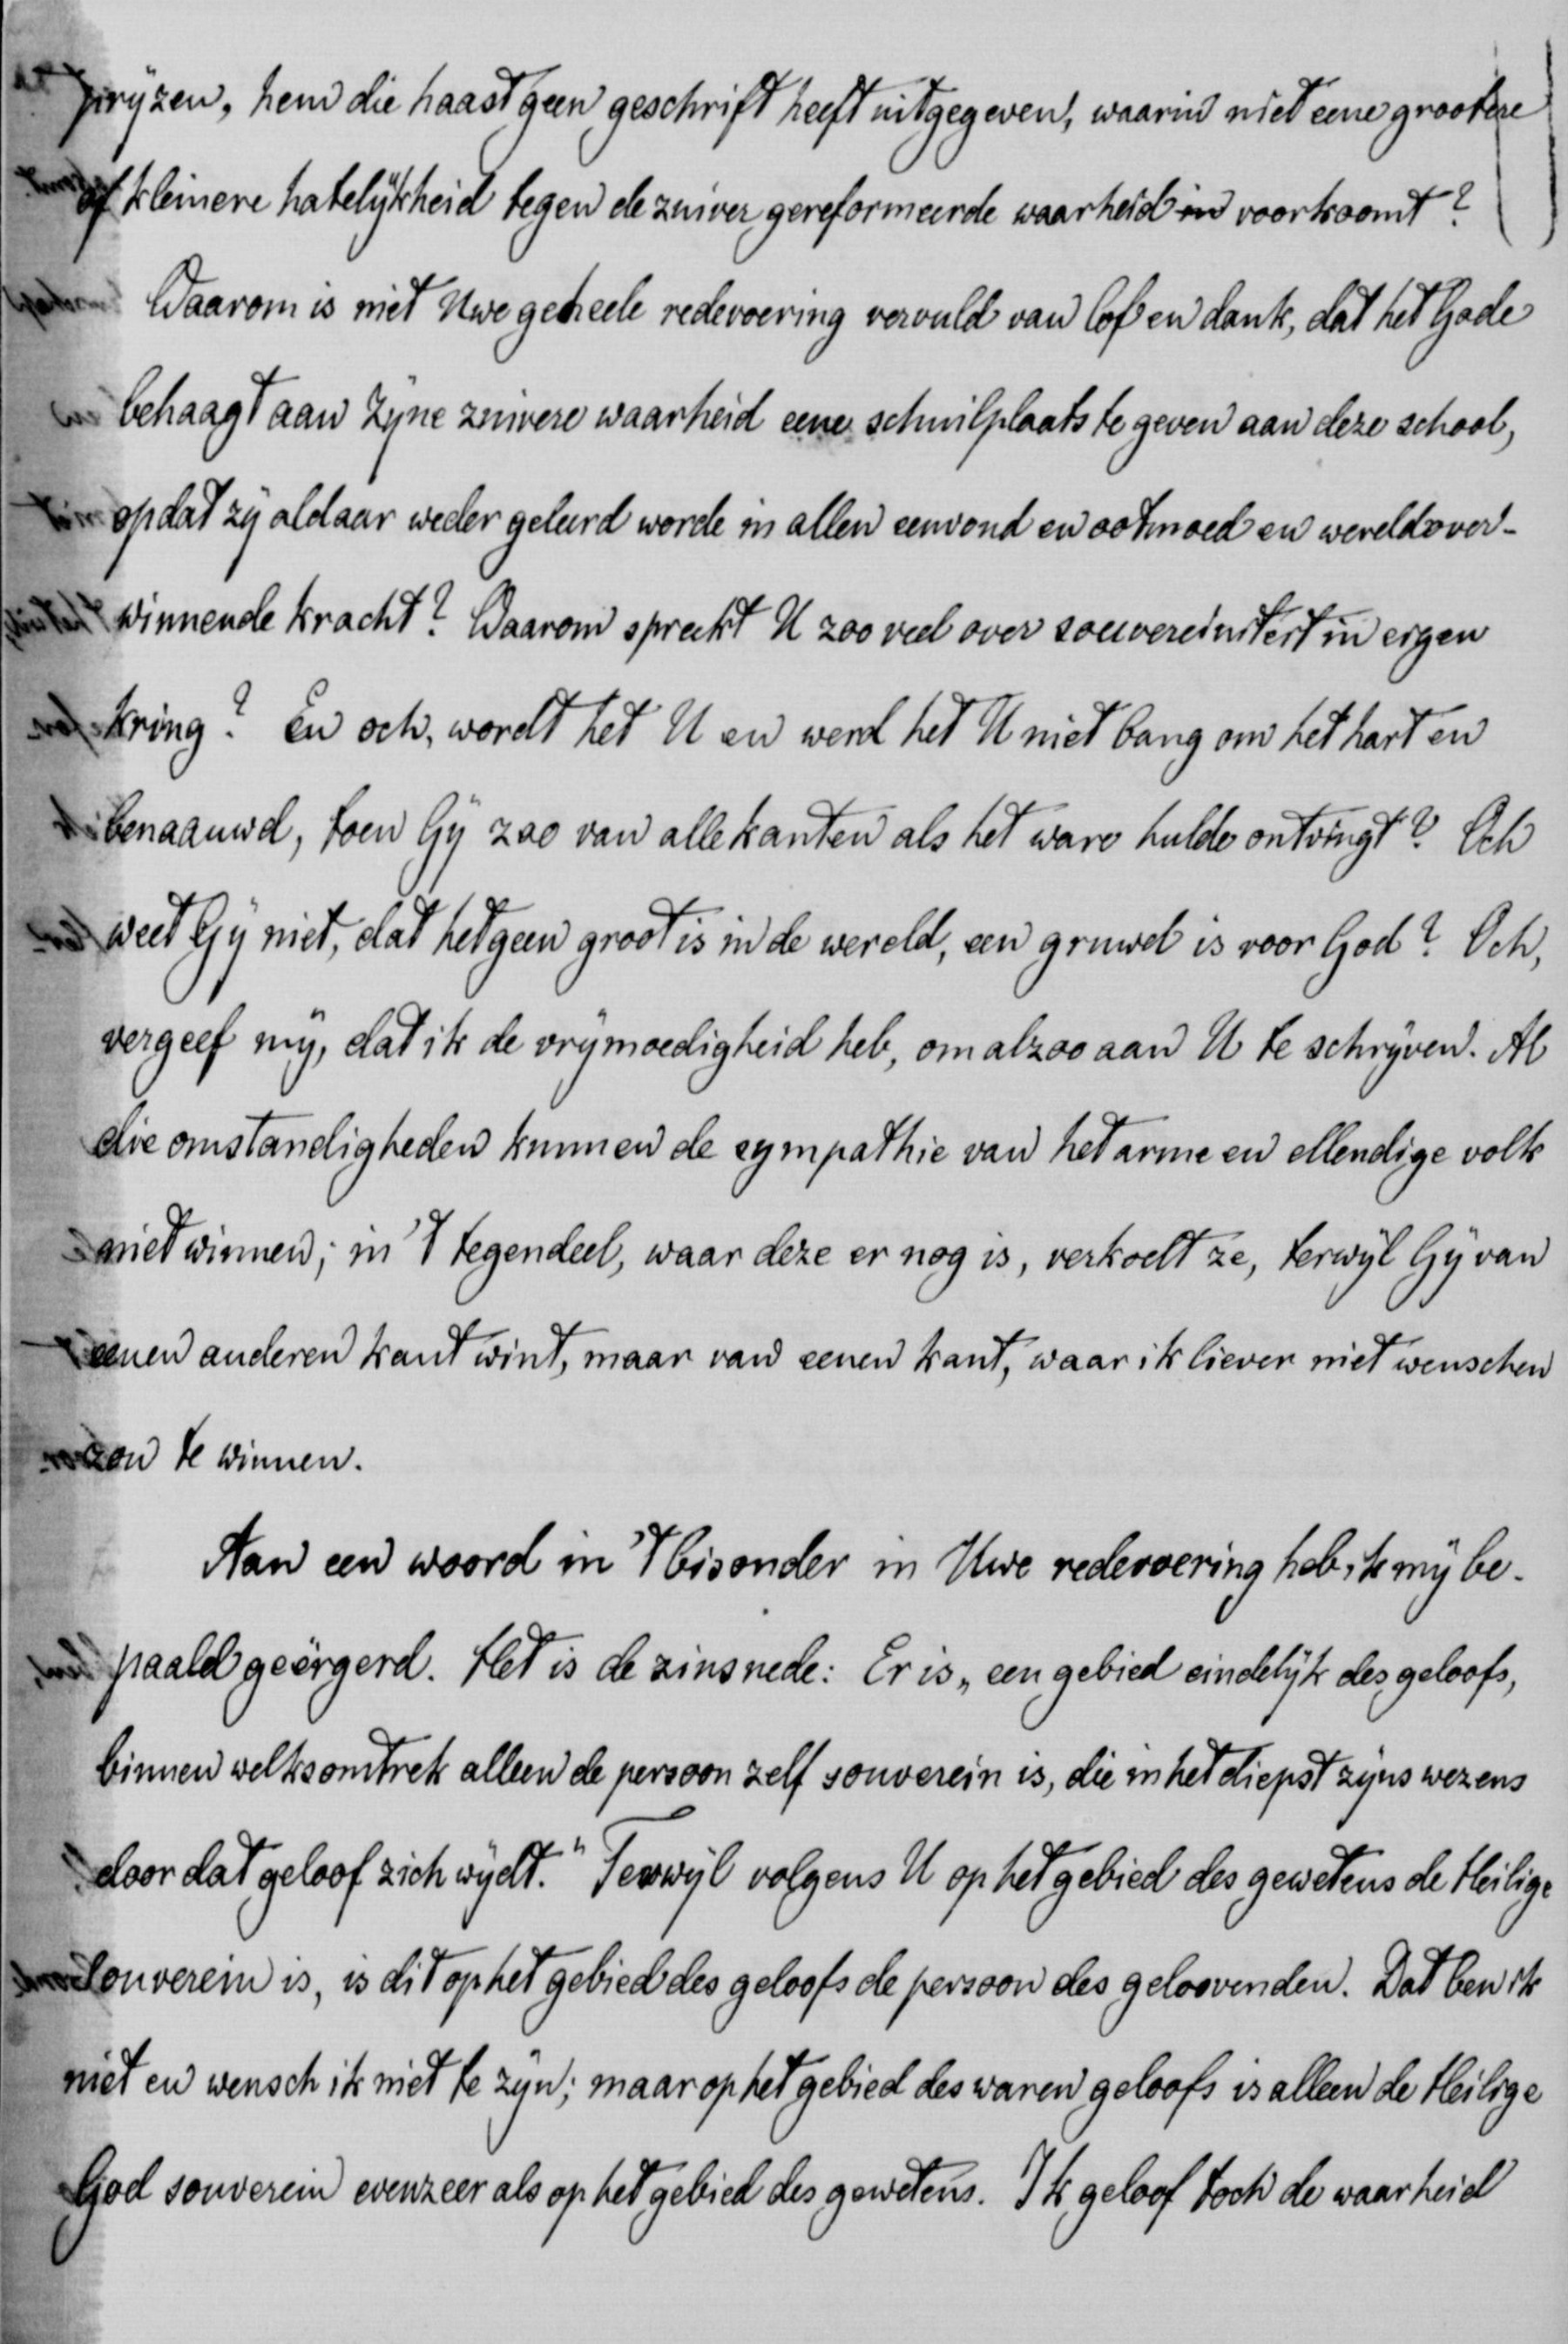 prijzen, hem die haast geen geschrift heeft uitgegeven, waarin niet eene grootere
of kleinere hatelijkheid tegen de zuiver gereformeerde waarheid in voorkoomt?
Waarom is niet Uwe geheele redevoering vervuld van lof en dank, dat het Gode
behaagt aan Zijne zuivere waarheid eene schuilplaats te geven aan deze school,
opdat zij aldaar weder geleerd worde in allen eenvoud en ootmoed en wereldover-
winnende kracht? Waarom spreekt U zoo veel over souvereiniteit in eigen
kring? En och, wordt het U en werd het U niet bang om het hart en
benaauwd, toen Gij zoo van alle kanten als het ware hulde ontvingt? Och
weet Gij niet, dat hetgeen groot is in de wereld, een gruwel is voor God? Och,
vergeef mij, dat ik de vrijmoedigheid heb, om alzoo aan U te schrijven. Al
die omstandigheden kunnen de sympathie van het arme en ellendige volk
niet winnen; in 't tegendeel, waar deze er nog is, verkoelt ze, terwijl Gij van
eenen anderen kant wint, maar van eenen kant, waar ik liever niet wenschen
zou te winnen.
Aan een woord in 't bisonder in Uwe redevoering heb ik mij be-
paald geërgerd. Het is de zinsnede: Er is „een gebied eindelijk des geloofs,
binnen welks omtrek alleen de persoon zelf souverein is, die in het diepst zijns wezens
door dat geloof zich wijdt." Terwijl volgens U op het gebied des gewetens de Heilige
souverein is, is dit op het gebied des geloofs de persoon des geloovenden. Dat ben ik
niet en wensch ik niet te zijn; maar op het gebied des waren geloofs is alleen de Heilige
God souverein evenzeer als op het gebied des gewetens. Ik geloof toch de waarheid